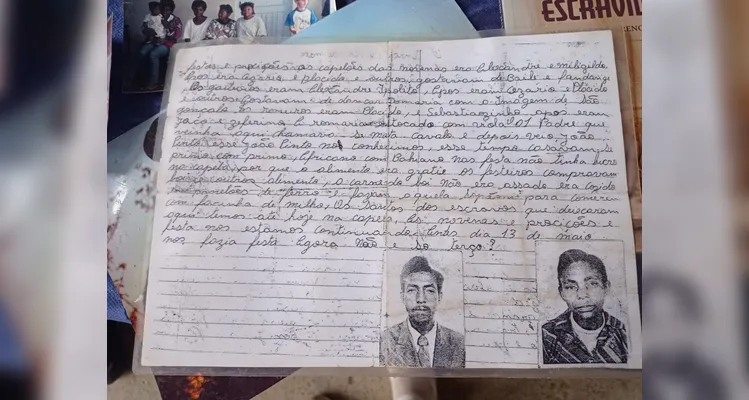 ESCRAVI
festes e procições os capelões das novenas era Alecandre emiligildo
era e placida e outros gostavam de Baile e fandango
Os gaiteiros eram Alexandre Ipolito, Apos eram Cezario e Placido
e outros Gostavam de dansar Romaria com a Imagem de São
gonçalo Os romeiros eram Placido, e Sebastiaozinho apos eram
e zeferina A romaria era tocada com viola? O1 Padre que
veinha aqui chamava se mata cavalo e depois veio João
Pinto esse João Pinto nos conhecimos, esse tempo casavam se
primo com primo, Africano com Bahiano nas festa não tinha lucro
na capela por que o alimento era gratis os festeiros compravam
outros alimento, a carne de boi não era assado era cozido
no de ferro e faziam aquela para comerem
com farinha de milho, Os Santos dos escravos que deixaram
aqui temos até hoje na capela, As novenas e procições e
festa nos estamos continuando tinha dia 13 de maio
nos fazia festa Agora não e so terço?